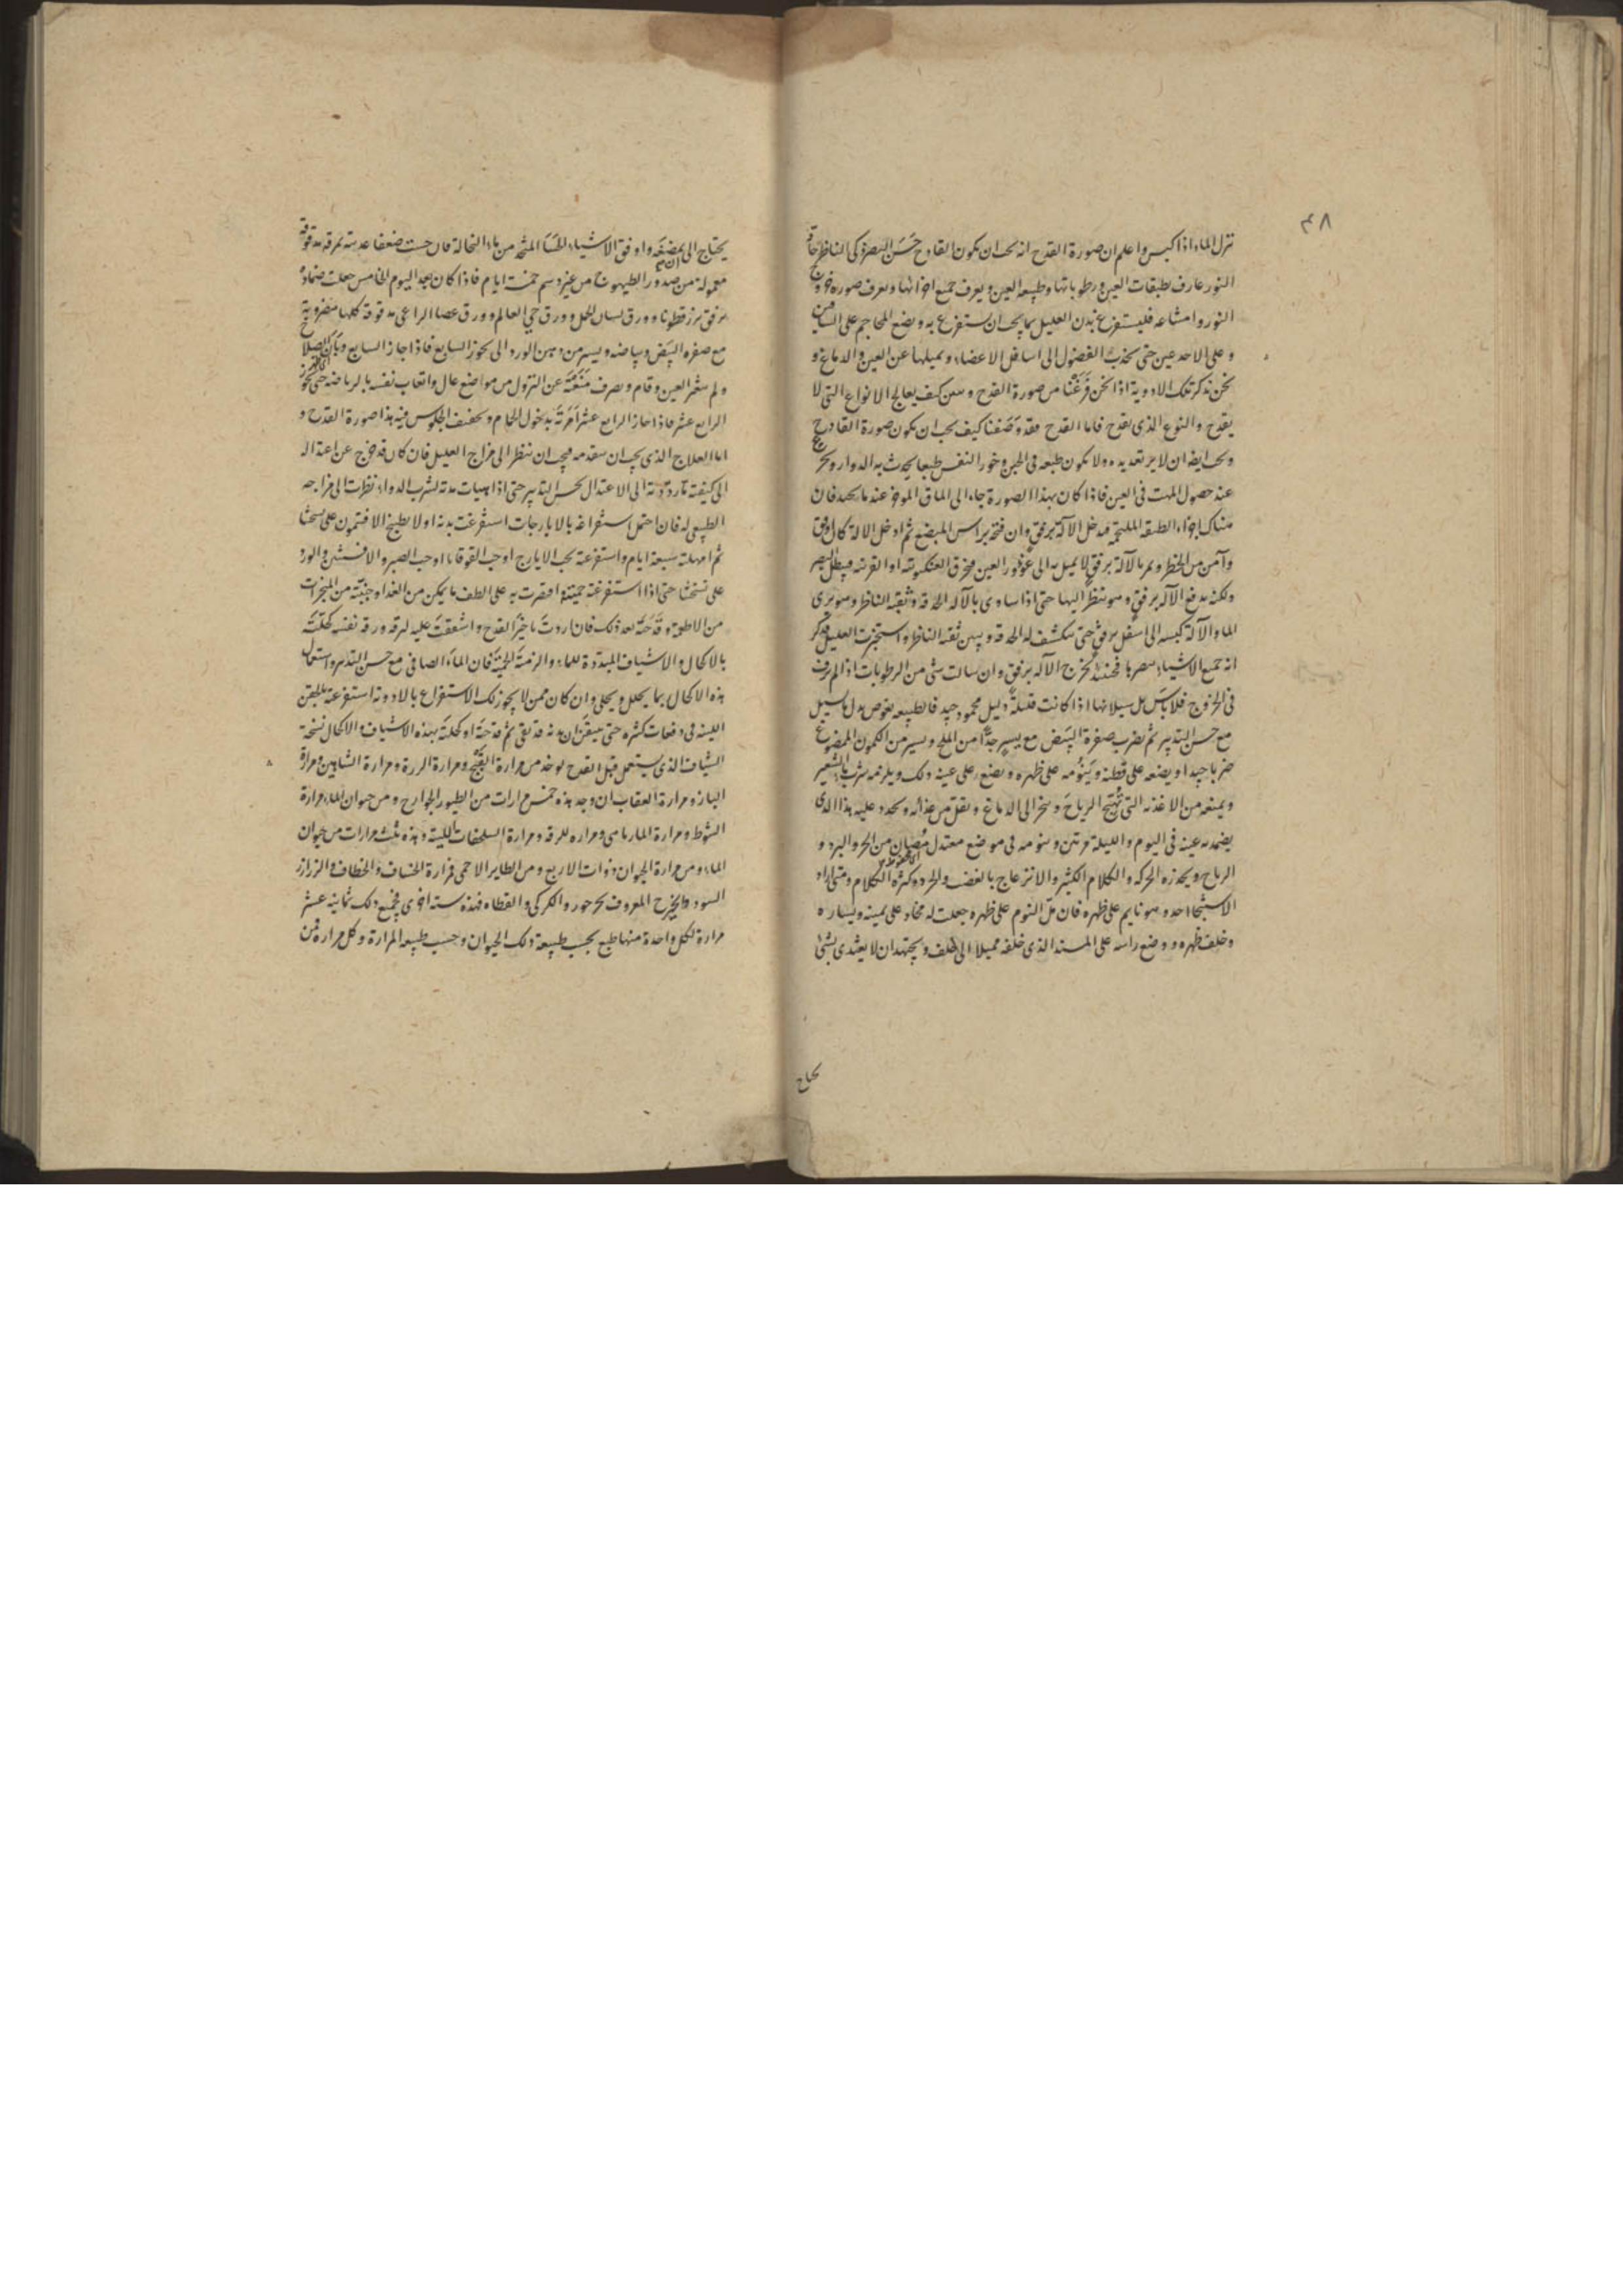 ٤٨
تنزل الماء اذا كبس واعلم ان صورة القدح انه يجب ان يكون القادح حَسَن البصر ذكى الناظر حاد
النور عارف بطبقات العين ورطوباتها وطبيعة العين ويعرف جميع اجزائها ويعرف صورة خروج
النور وامشاعه فليستفرغ بدن العليل بما يجب ان يستفرغ به ويضع المحاجم على الساقين
وعلى الاخدعين حتى يجذب الفضول الى اسافل الاعضاء ويميلها عن العين والدماغ و
نحن نذكر تلك الادوية اذا نحن فَرَغْنا من صورة القدح و كيف يعالج الانواع التى لا
يقدح والنوع الذى يقدح فاما القدح فقد وَصَفنا كيف يجب ان يكون صورة القادح
ويجب ايضا ان لا يرتعد يده ولا يكون طبعه فى الجبن وخور النفس طبعا يحدث به الدوار
عند حصول المهت فى العين فاذا كان بهذا الصورة جاء الى الماق الموخر عند ما يحيد فان
هناك اجزاء الطبقة الملتحمة فدخل الآلة برفق وان فتحه براس المبضع ثم ادخل الالة كان اوفق
وآمن من الخطر ويمر بالآلة برفق لا يميل به الى غؤور العين فيخرق العنكبوتية او القرنية فيبطل البصر
ولكنه يدفع الآلة برفق وهو ينظر اليها حتى اذا ساوى بالآلة الحدقة وثقبة الناظر وهو يرى
الماء والآلة كبسه الى اسفل برفق حتى ينكشف له الحدقة ويبين ثقبة الناظر واستخبرت العليل فذكر
انه جميع الاشياء يبصرها فحينئذ تخرج الآلة برفق وان سالت شئ من الرطوبات اذا لم يرفق
فى الخروج فلا بأس من سيلانها اذا كانت قليلة
مع حسن التدبير ثم تضرب صفرة البيض مع يسير جدًّا من الملح ويسير من الكمون الممضوغ
ضربا جيدا ويضعه على قطنة ويُنَوِّمه على ظهره ويضع على عينه ذلك ويلزمه شرب ماء الشعير
ويمنعه من الاغذية التى تُهَيِّج الرياح وتبخر الى الدماغ ويقلل من غذائه ويجدد عليه هذا الذى
يضمد به عينه فى اليوم والليلة مرتين وينومه فى موضع معتدل مُصَان من الحر والبرد و
الرياح ويحذره الحركة والكلام الكثير والانزعاج بالغضب والحرد وكثرة الكلام ومتى اراد
الاستنجا احد وهو نايم على ظهره فان ملّ النوم على ظهره جعلت له مخاد على يمينه ويساره
وخلف ظهره ووضع راسه على المسند الذى خلفه مميلا الى الخلف ويجتهد ان لا يغتدى بشئ
يحتاج
يحتاج الى مضغه واوفق الاشياء الحسا المتخذ من ماء النخالة فان حست ضعفا غديته بمرقة مدقوقة
معمولة من صدور الطيهوج من غير دسم خمسة ايام فاذا كان بعد اليوم الخامس جعلت ضماده
برفق بزر قطونا وورق لسان الحمل وورق حى العالم وورق عصا الراعى مدقوقة كلها مضروبة
مع صفرة البيض وبياضه ويسير من دهن الورد الى تجوز السابع فاذا جاز السابع وبان الصلاح
ولم يتغير العين وقام وتصرف مَنَعْتَه عن النزول من مواضع عال واتعاب نفسه بالرياضة حتى تجوز
الرابع عشر فاذا جاز الرابع عشر أمَرتَه بدخول الحمام وتخفيف الجلوس فيه هذا صورة القدح و
اما العلاج الذى يجب ان يتقدمه فيجب ان تنظر الى مزاج العليل فان كان قد خرج عن اعتدال
الى كيفية ما رددته الى الاعتدال بحسن التدبير حتى اذا هيات بدنه لشرب الدواء نظرت الى مزاجه
الطبيعى له فان احتمل استفراغه بالايارجات استفرغت بدنه اولا بطبيخ الافتيمون على نسختنا
ثم امهلته سبعة ايام واستفرغته بحب الايارج او حب القوقايا او حب الصبر والافسنتين والورد
على نسختنا حتى اذا استفرغته حينئذ اقتصرت به على الطف ما يمكن من الغذا وجنبته من المبخرات
من الاطعمة وقَدَحْتَه بعد ذلك فان اردتَ تاخيرَ القدح واشفقتَ عليه لرقة ورقة نفسه كحلته
بالاكحال والاشياف المبددة للماء والزمته الحمية فان الماء الصافى مع حسن التدبير واستعمال
هذه الاكحال بما يحلل ويجلى وان كان ممن لا يجوز لك الاستفراغ بالادوية استفرغته بالحقن
اللينة فى دفعات كثيرة حتى تتيقن ان بدنه قد نقى ثم قدحتَه او كحلته بهذه الاشياف والاكحال نسخة
الشياف الذى يستعمل قبل القدح يوخذ من مرارة القَبَج ومرارة ومرارة الشاهين ومرارة
الباز ومرارة العقاب ان وجد هذه خمس مرارات من الطيور الجوارح ومن حيوان الماء مرارة
الشبوط ومرارة المارماهى ومرارة ومرارة السلحفات هذه ثلث مرارات من حيوان
الماء ومن مرارة الحيوان ذوات الاربع ومن الطاير الاخمى مرارة الخشاف والخطاف والزرازر
السود المعروف والكركى والقطاه فهذه ستة اخرى فجميع ذلك ثمانية عشر
مرارة لكل واحدة منها طبع بحسب طبيعة ذلك الحيوان وحسب طبيعة المرارة وكل مرارة فمن